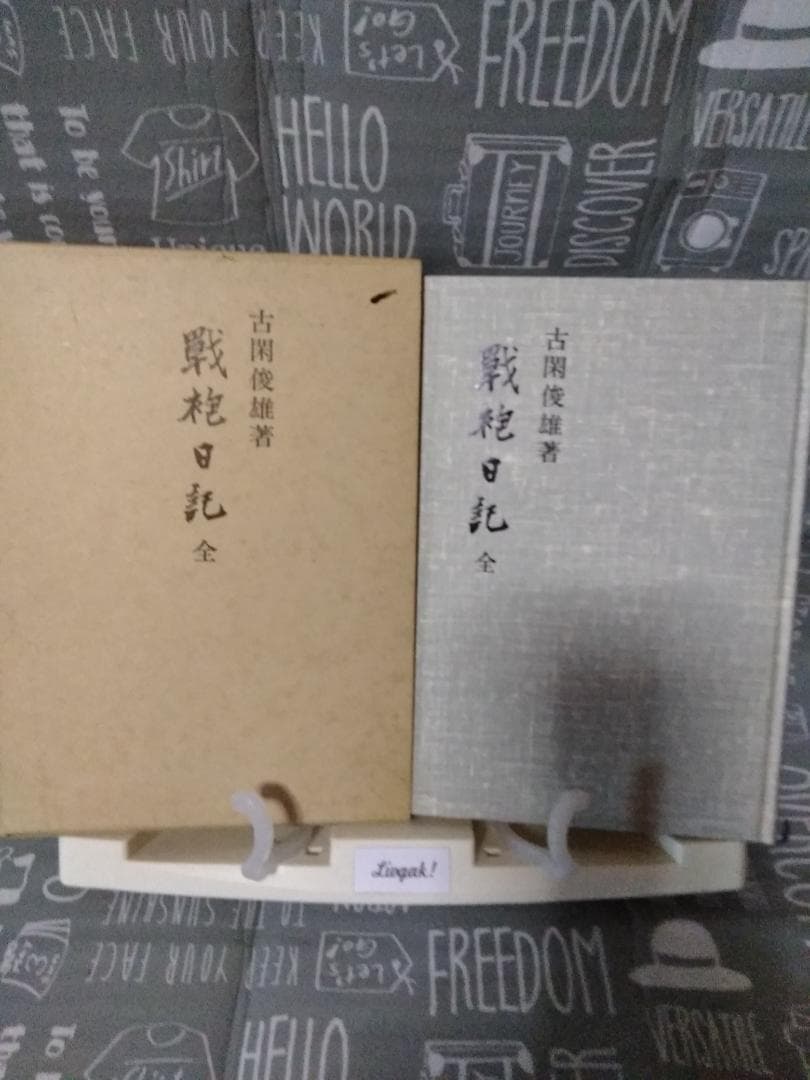 KEEP YOUR FACE
Let's Go!
FREEDOM
VERSATILE
To be your
that is
Shirt
HELLO
WORLD
Unique
JOURNEY
DISCOVER
古閑俊雄著
戰袍日記
全
古閑俊雄著
戰袍日記
全
Livqak!
TO THE SUNSHINE
KEEP YOUR FACE
Let's Go!
FREEDOM
VERSATILE
To
HELLO